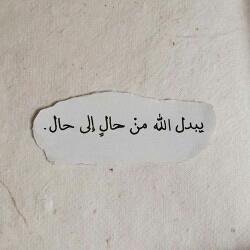 يبدل الله منْ حالٍ إلى حال.